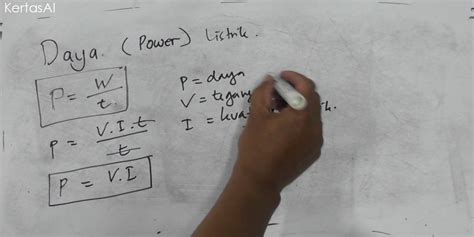 KertasAI
Daya. (Power) Listrik.
P = W / t
P = V.I.t / t
P = V.I
P = daya
V =
I =